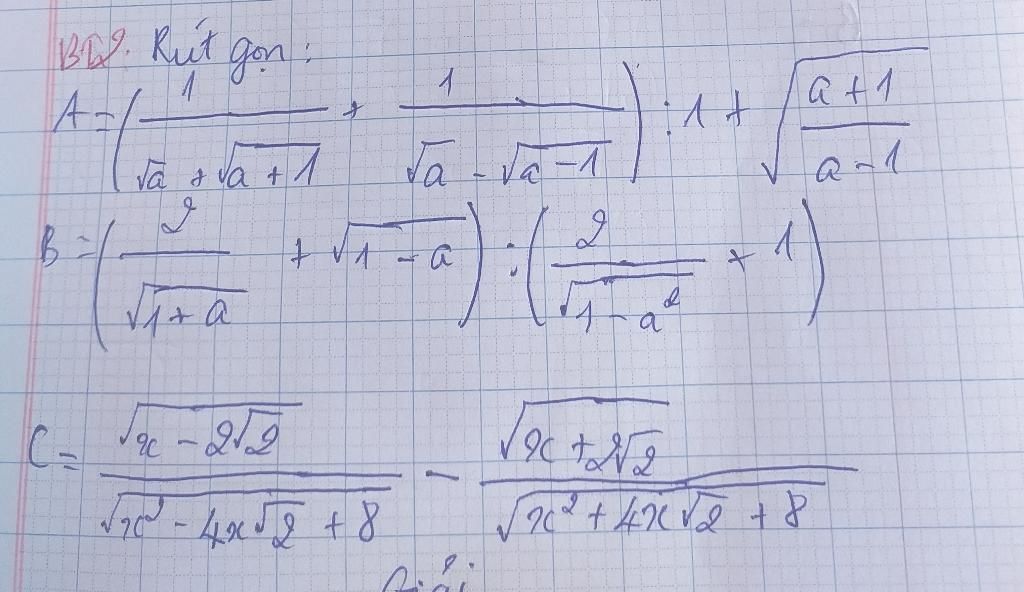 BT2. Rút gọn :
A = ( 1/(√a + √(a + 1)) + 1/(√a - √(a - 1)) ) : 1 + √((a + 1)/(a - 1))
B = ( 2/√(1 + a) + √(1 - a) ) : ( 2/√(1 - a²) + 1 )
C = √(x - 2√2)/√(x² - 4x√2 + 8) - √(x + 2√2)/√(x² + 4x√2 + 8)
Giải